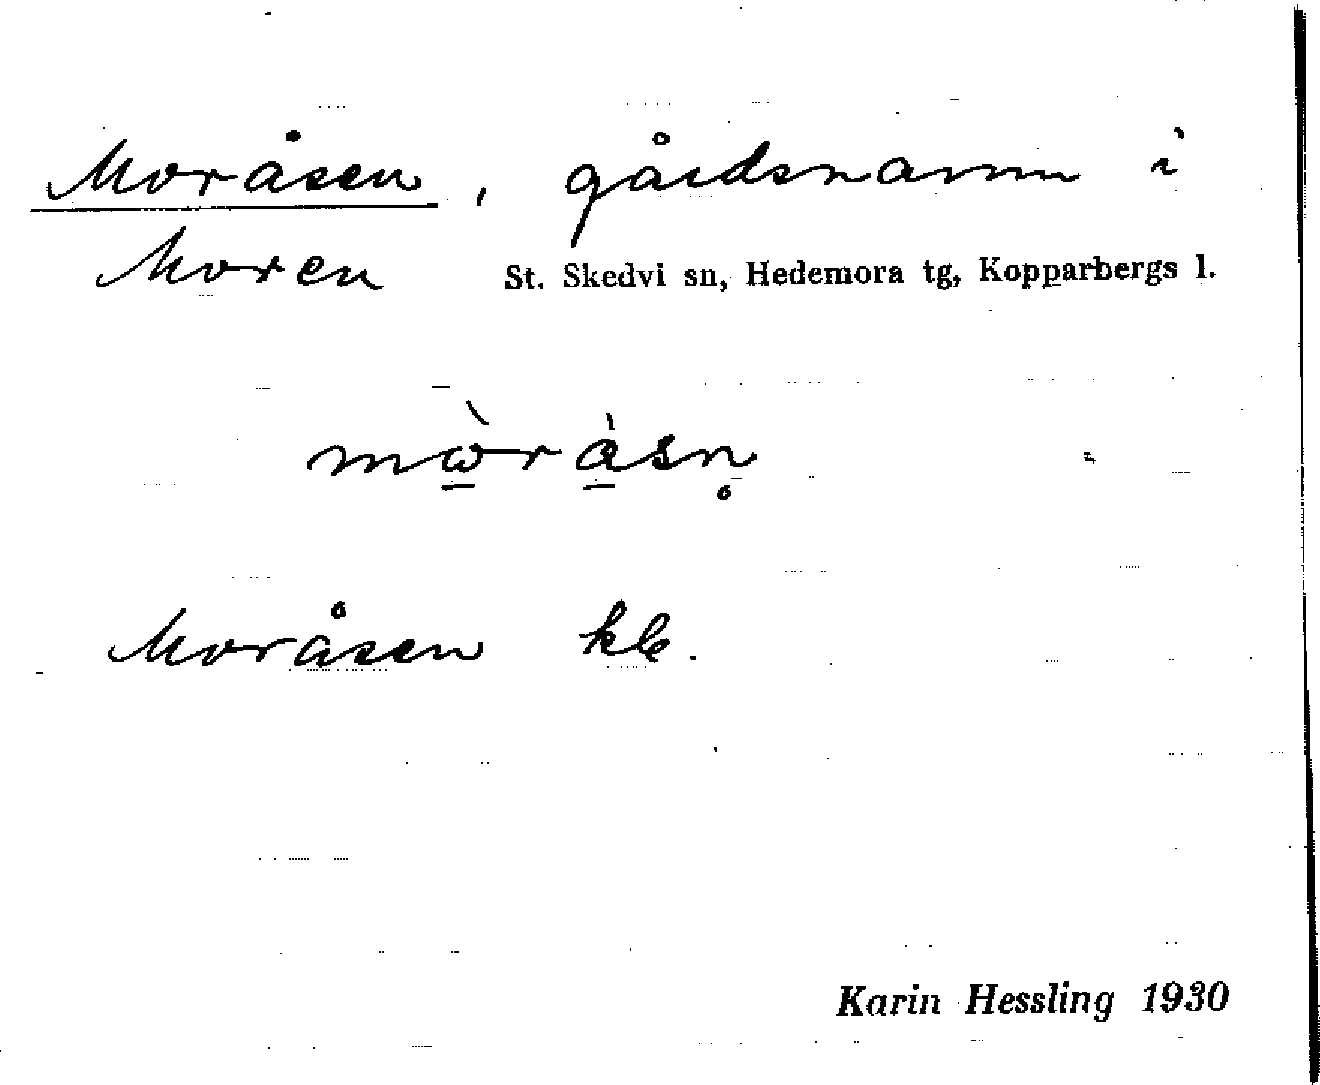 Moråsen, gårdsnamn i
Moren St. Skedvi sn, Hedemora tg, Kopparbergs l.
mὼ̱rà̱sn̥
Moråsen kb.
Karin Hessling 1930